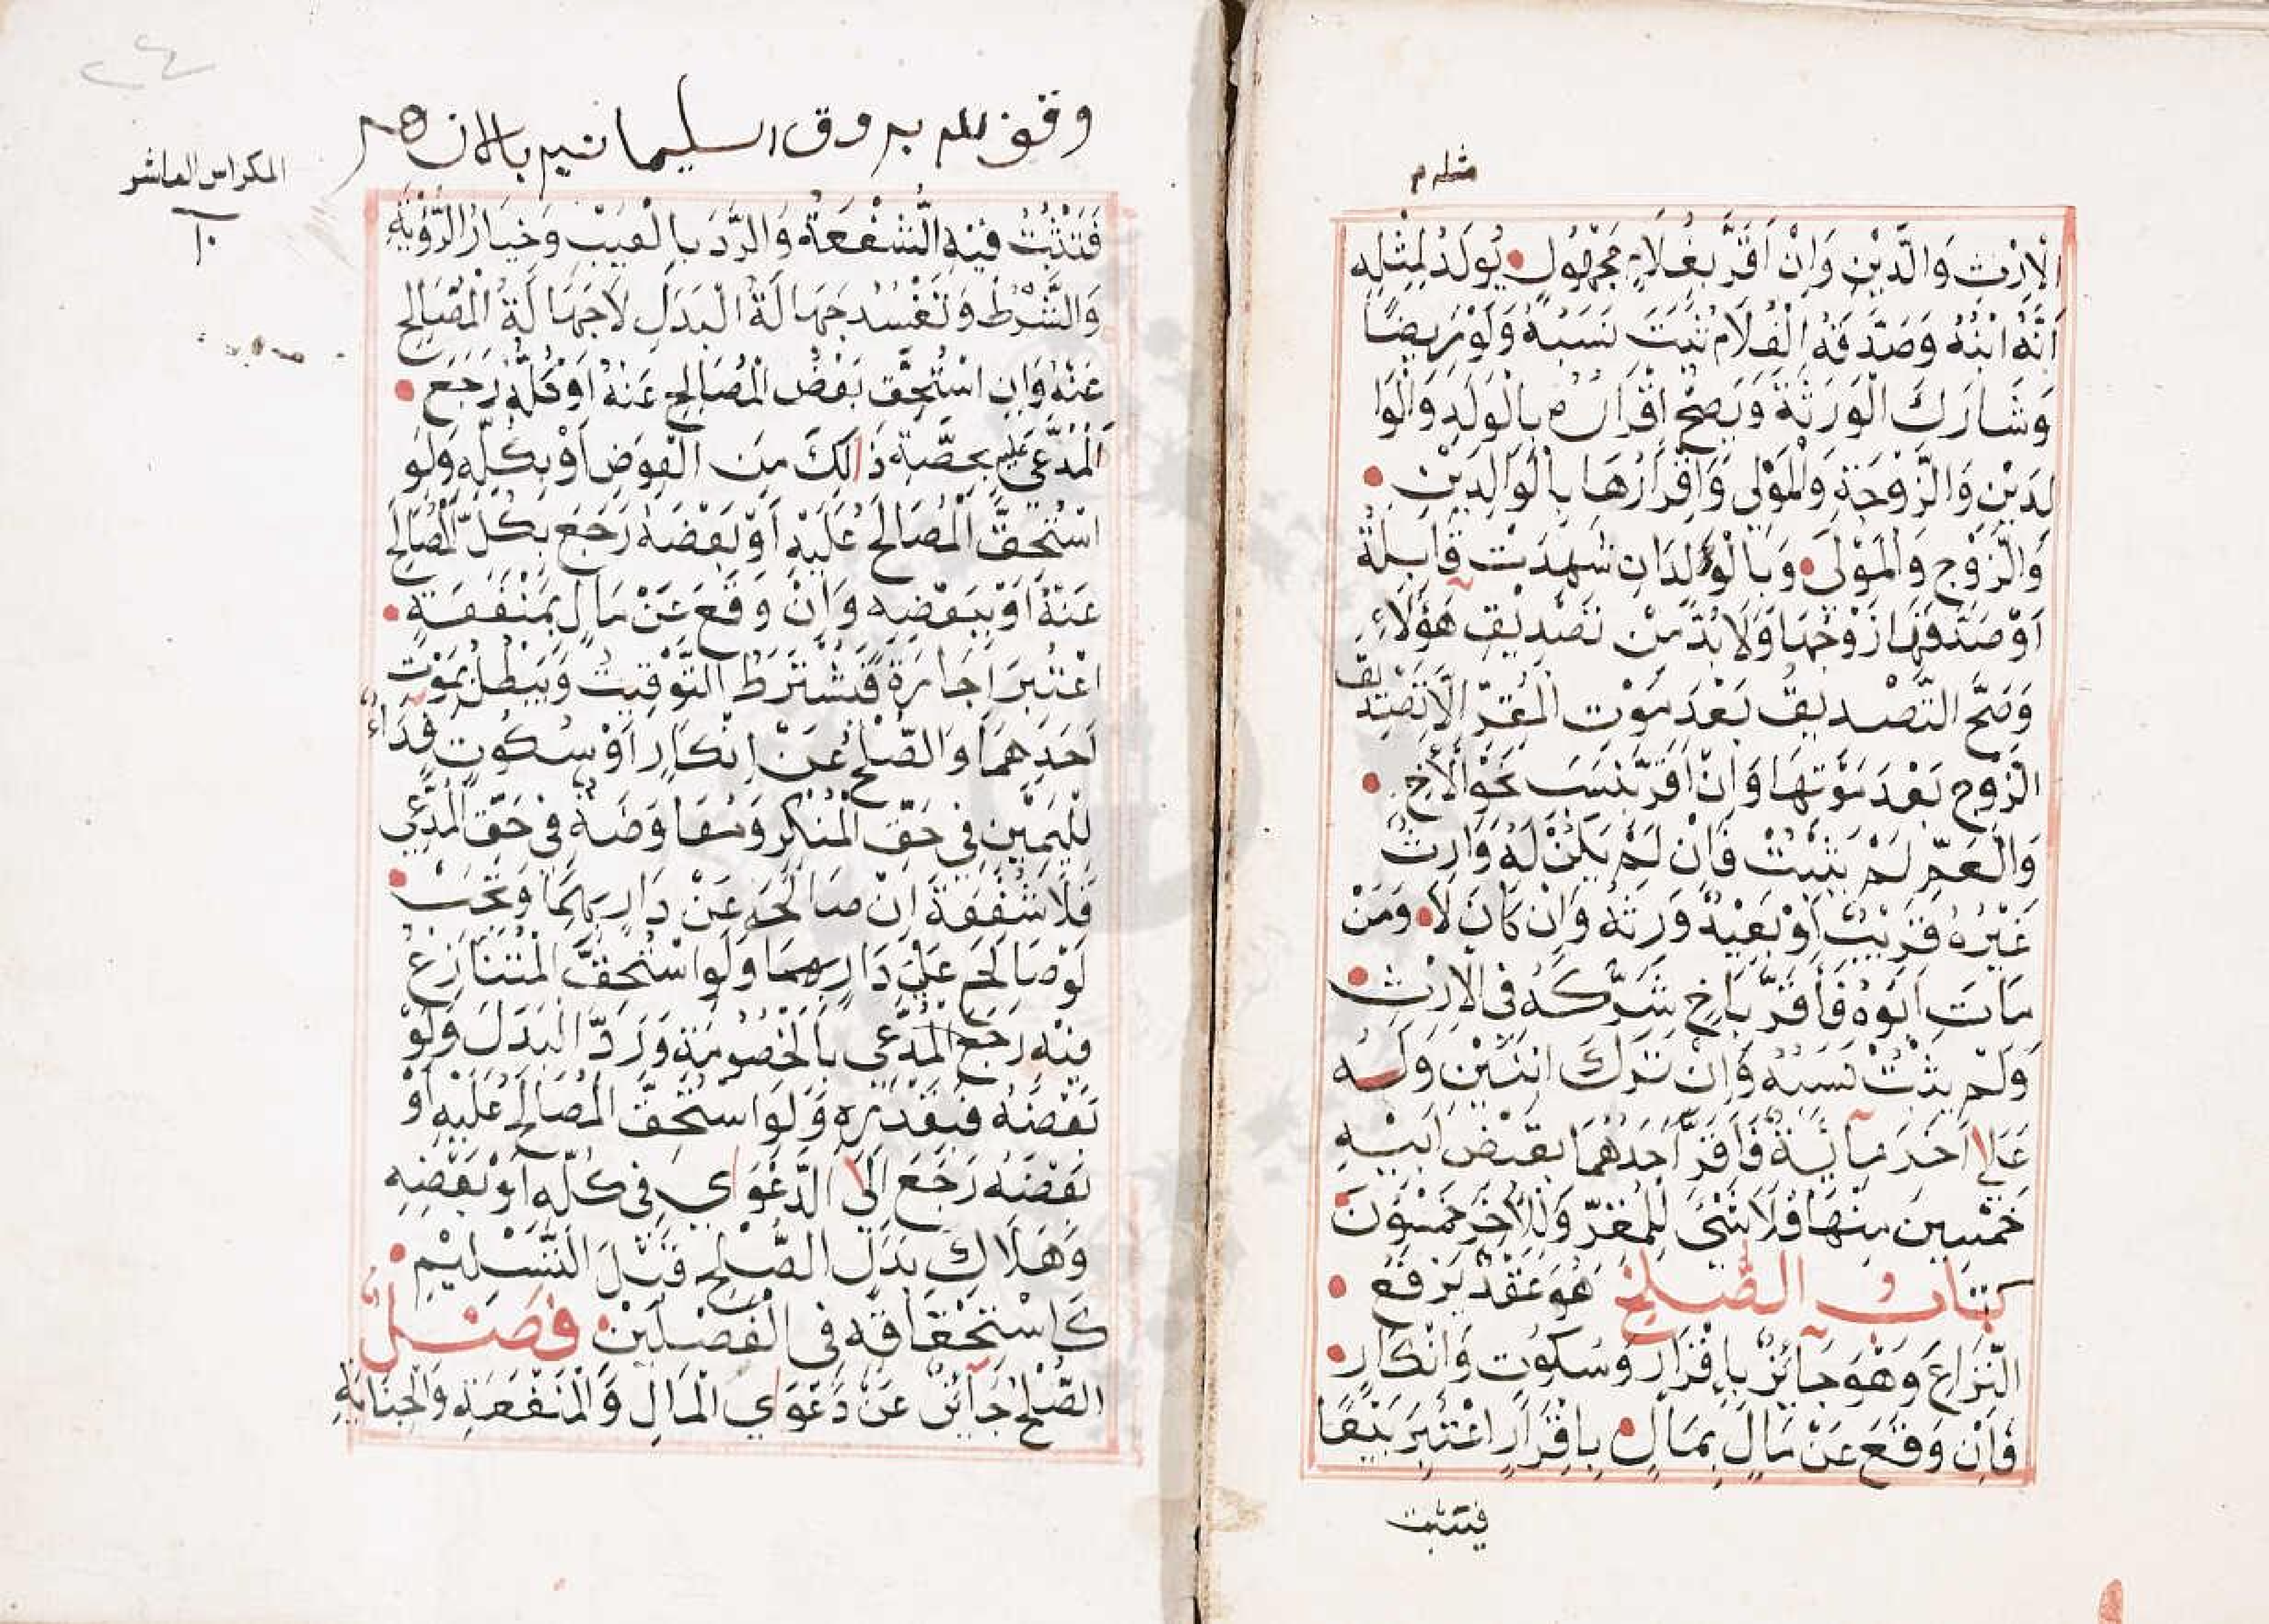 الْاِرْثِ وَالدَّيْنِ وَاِنْ اَقَرَّ بِغُلَامٍ مَجْهُولٍ يُولَدُ لِمِثْلِهِ
اَنَّهُ ابْنُهُ وَصَدَّقَهُ الْغُلَامُ ثَبَتَ نَسَبُهُ وَلَوْ مَرِيضًا
وَشَارَكَ الْوَرَثَةَ وَيَصِحُّ اِقْرَارُهُ بِالْوَلَدِ وَالْوَا
لِدَيْنِ وَالزَّوْجَةِ وَالْمَوْلٰى وَاِقْرَارُهَا بِالْوَالِدَيْنِ
وَالزَّوْجِ وَالْمَوْلَى وَبِالْوَلَدِ اِنْ شَهِدَتْ قَابِلَةٌ
اَوْ صَدَّقَهَا زَوْجُهَا وَلَا بُدَّ مِنْ تَصْدِيْقِ هَؤُلَاءِ
وَصَحَّ التَّصْدِيقُ بَعْدَ مَوْتِ الْمُقِرِّ اِلَّا تَصْدِيْقَ
الزَّوْجِ بَعْدَ مَوْتِهَا وَاِنْ اَقَرَّ بِنَسَبِ نَحْوِ الْأَخِ
وَالْعَمِّ لَمْ يَثْبُتْ فَاِنْ لَمْ يَكُنْ لَهُ وَارِثٌ
غَيْرُهُ قَرِيْبٌ اَوْ بَعِيْدٌ وَرِثَهُ وَاِنْ كَانَ لَا وَمَنْ
مَاتَ اَبُوهُ فَاَقَرَّ بِاَخٍ شَرَّكَهُ فِى الْاِرْثِ
وَلَمْ يَثْبُتْ نَسَبُهُ وَاِنْ تَرَكَ ابْنَيْنِ وَلَهُ
عَلٰى اٰخَرَ مِاٰئَةٌ فَاَقَرَّ اَحَدُهُمَا بِقَبْضِ اَبِيْهِ
خَمْسِينَ مِنْهَا فَلَا شَئَ لِلْمُقِرِّ وَلِلْاٰخَرِ خَمْسُوْنَ
كِتَابُ الصُّلْحِ هُوَ عَقْدٌ يَرْفَعُ
النِّزَاعَ وَهُوَ جَآئِزٌ بِاِقْرَارٍ وَسُكُوْتٍ وَاِنْكَارٍ
فَاِنْ وَقَعَ عَنْ مَالٍ بِمَالٍ بِاِقْرَارٍ اعْتُبِرَ بَيْعًا
فتثبت
وقف لله برواق السليمانيه بالازهر
الكراس العاشر
١٠
فَتَثْبُتُ فِيْهِ الشُّفْعَةُ وَالرَّدُّ بِالْعَيْبِ وَخِيَارُ الرُّؤْيَةِ
وَالشَّرْطِ وَتُفْسِدُ جَهَالَةُ الْبَدَلِ لَا جَهَالَةُ الْمُصَالَحِ
عَنْهُ وَاِنِ اسْتُحِقَّ بَعْضُ الْمُصَالَحِ عَنْهُ اَوْ كُلُّهُ رَجَعَ
الْمُدَّعٰى عَلَيْهِ بِحِصَّةِ ذَالِكَ مِنَ الْعِوَضِ اَوْ بِكُلِّهِ وَلَوِ
اسْتُحِقَّ الْمُصَالَحُ عَلَيْهِ اَوْ بَعْضُهُ رَجَعَ بِكُلِّ الْمُصَالَحِ
عَنْهُ اَوْ بِبَعْضِهِ وَاِنْ وَقَعَ عَنْ مَالٍ بِمَنْفَعَةٍ
اعْتُبِرَ اِجَارَةً فَيُشْتَرَطُ التَّوْقِيْتُ وَيَبْطُلُ بِمَوْتِ
اَحَدِهِمَا وَالصُّلْحُ عَنْ اِنْكَارٍ اَوْ سُكُوتٍ فِدَاءٌ
لِلْيَمِيْنِ فِي حَقِّ الْمُنْكِرِ وَمُعَاوَضَةٌ فِي حَقِّ الْمُدَّعِي
فَلَا شُفْعَةَ اِنْ صَالَحَا عَنْ دَارٍ بِهِمَا وَتَجِبُ
لَوْ صَالَحَا عَلٰى دَارٍ بِهِمَا وَلَوِ اسْتُحِقَّ الْمُتَنَازَعُ
فِيْهِ رَجَعَ الْمُدَّعِي بِالْخُصُومَةِ وَرَدَّ الْبَدَلَ وَلَوْ
بَعْضُهُ فَبِقَدْرِهِ وَلَوِ اسْتُحِقَّ الْمُصَالَحُ عَلَيْهِ اَوْ
بَعْضُهُ رَجَعَ اِلَى الدَّعْوَاي فِي كُلِّهِ اَوْ بَعْضِهِ
وَهَلَاكُ بَدَلِ الصُّلْحِ قَبْلَ التَّسْلِيْمِ
كَاسْتِحْقَاقِهِ فِى الْفَصْلَيْنِ فَصْلٌ
الصُّلْحُ جَآئِزٌ عَنْ دَعْوَاي الْمَالِ وَالْمَنْفَعَةِ وَالْجِنَايَةِ